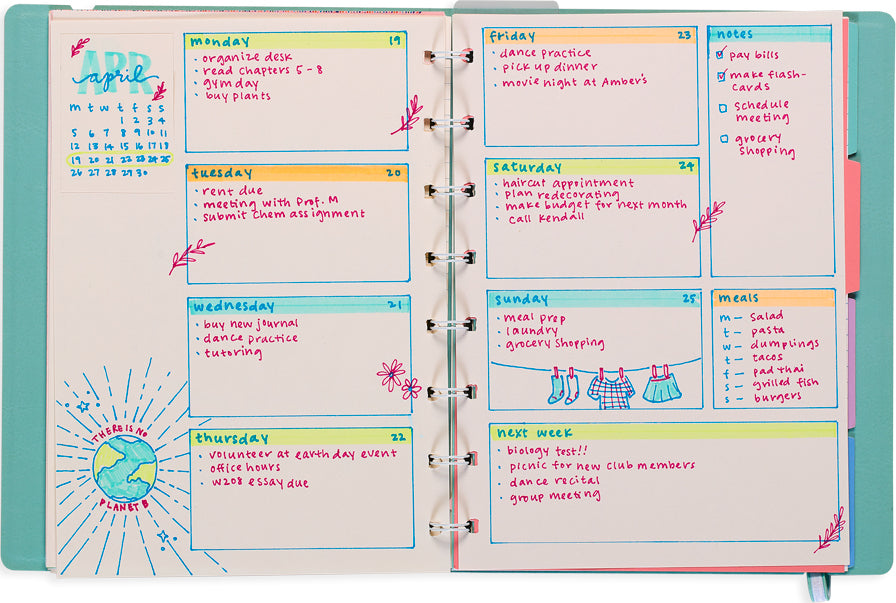 APR
april
m t w t f s s
1 2 3 4
5 6 7 8 9 10 11
12 13 14 15 16 17 18
19 20 21 22 23 24 25
26 27 28 29 30
THERE IS NO
PLANET B
monday 19
· organize desk
· read chapters 5-8
· gym day
· buy plants
tuesday 20
· rent due
· meeting with Prof. M
· submit chem assignment
wednesday 21
· buy new journal
· dance practice
· tutoring
thursday 22
· volunteer at earth day event
· office hours
· W208 essay due
friday 23
· dance practice
· pick up dinner
· movie night at Amber's
saturday 24
· haircut appointment
· plan redecorating
· make budget for next month
· call Kendall
sunday 25
· meal prep
· laundry
· grocery shopping
notes
pay bills
make flash-
cards
schedule
meeting
grocery
shopping
meals
m - salad
t - pasta
w - dumplings
t - tacos
f - pad thai
s - grilled fish
s - burgers
next week
· biology test!!
· picnic for new club members
· dance recital
· group meeting